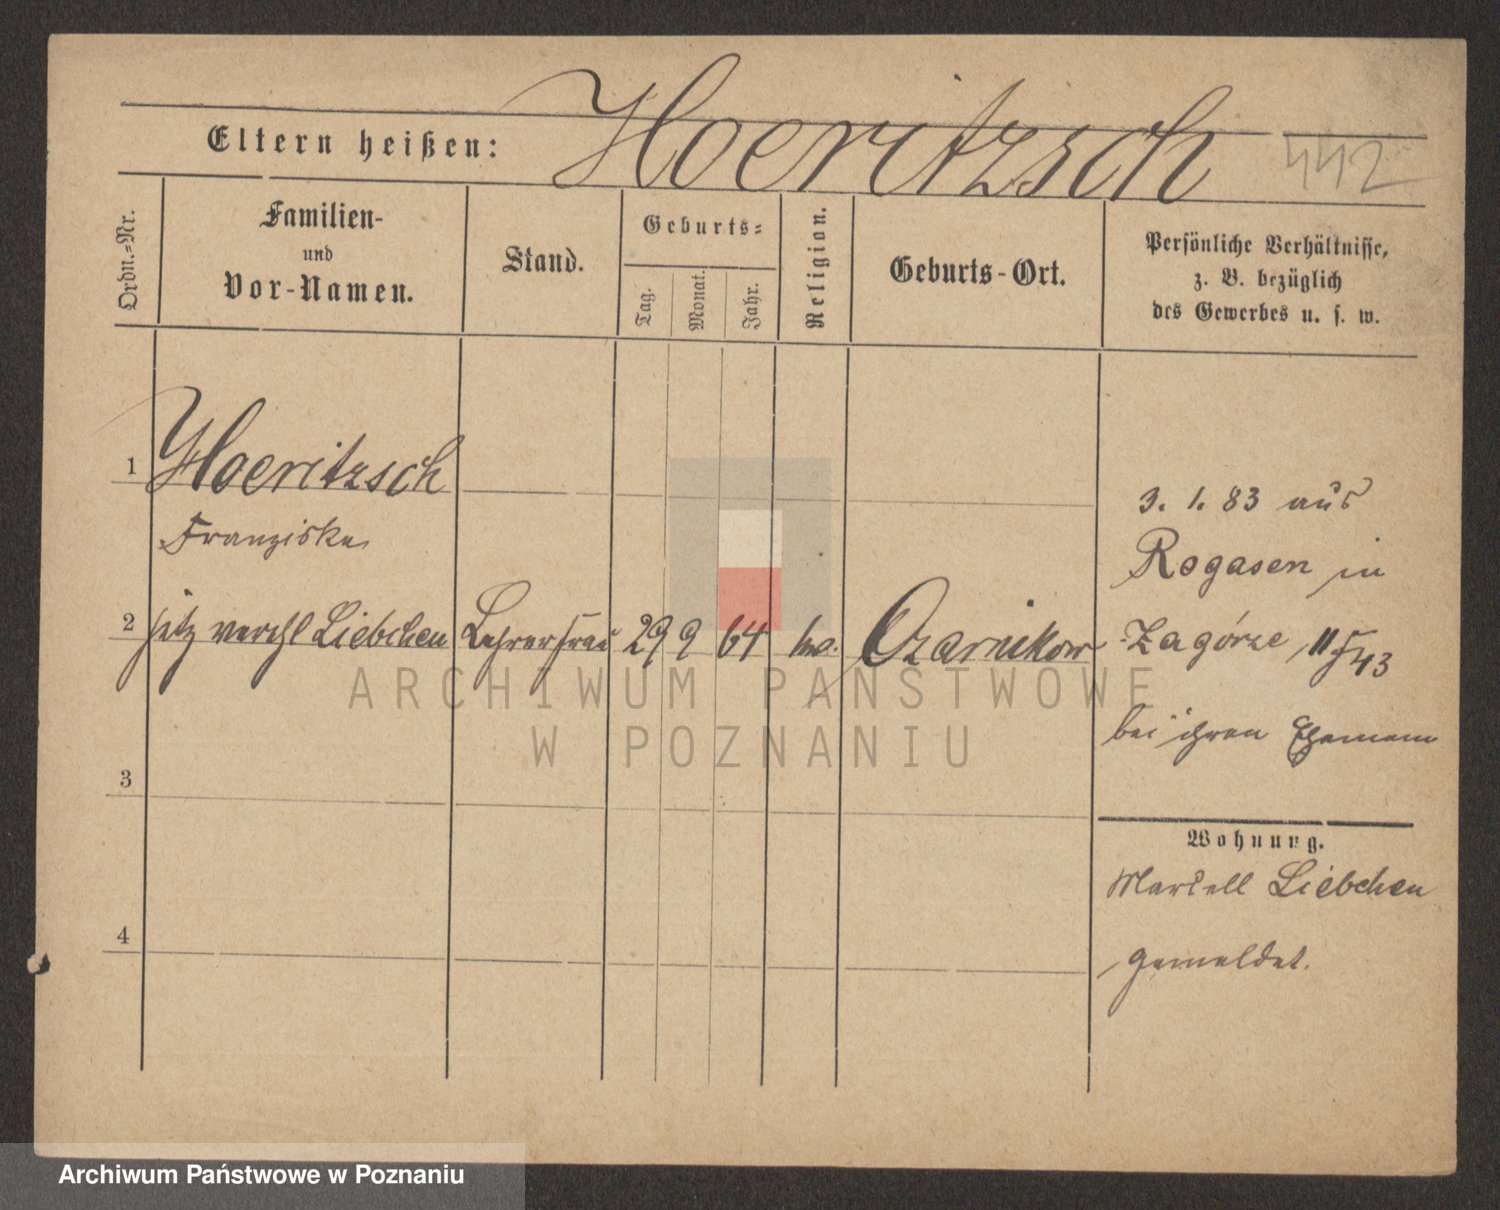 Eltern heißen: Hoeritzsch
442
Ordn.-Nr.
Familien-
und
Vor-Namen.
Stand.
Geburts-
Tag.
Monat.
Jahr.
Religion.
Geburts-Ort.
Persönliche Verhältnisse,
z. B. bezüglich
des Gewerbes u. s. w.
1
Hoeritzsch
Franziska
2
jetz verehl Liebchen
Lehrerfrau
29
9
64
Czarnikow
3. 1. 83 aus
Rogasen in
Zagórze 11
43
bei ihren Ehemann
3
4
Wohnung.
Marzell Liebchen
gemeldet.
ARCHIWUM PAŃSTWOWE
W POZNANIU
Archiwum Państwowe w Poznaniu